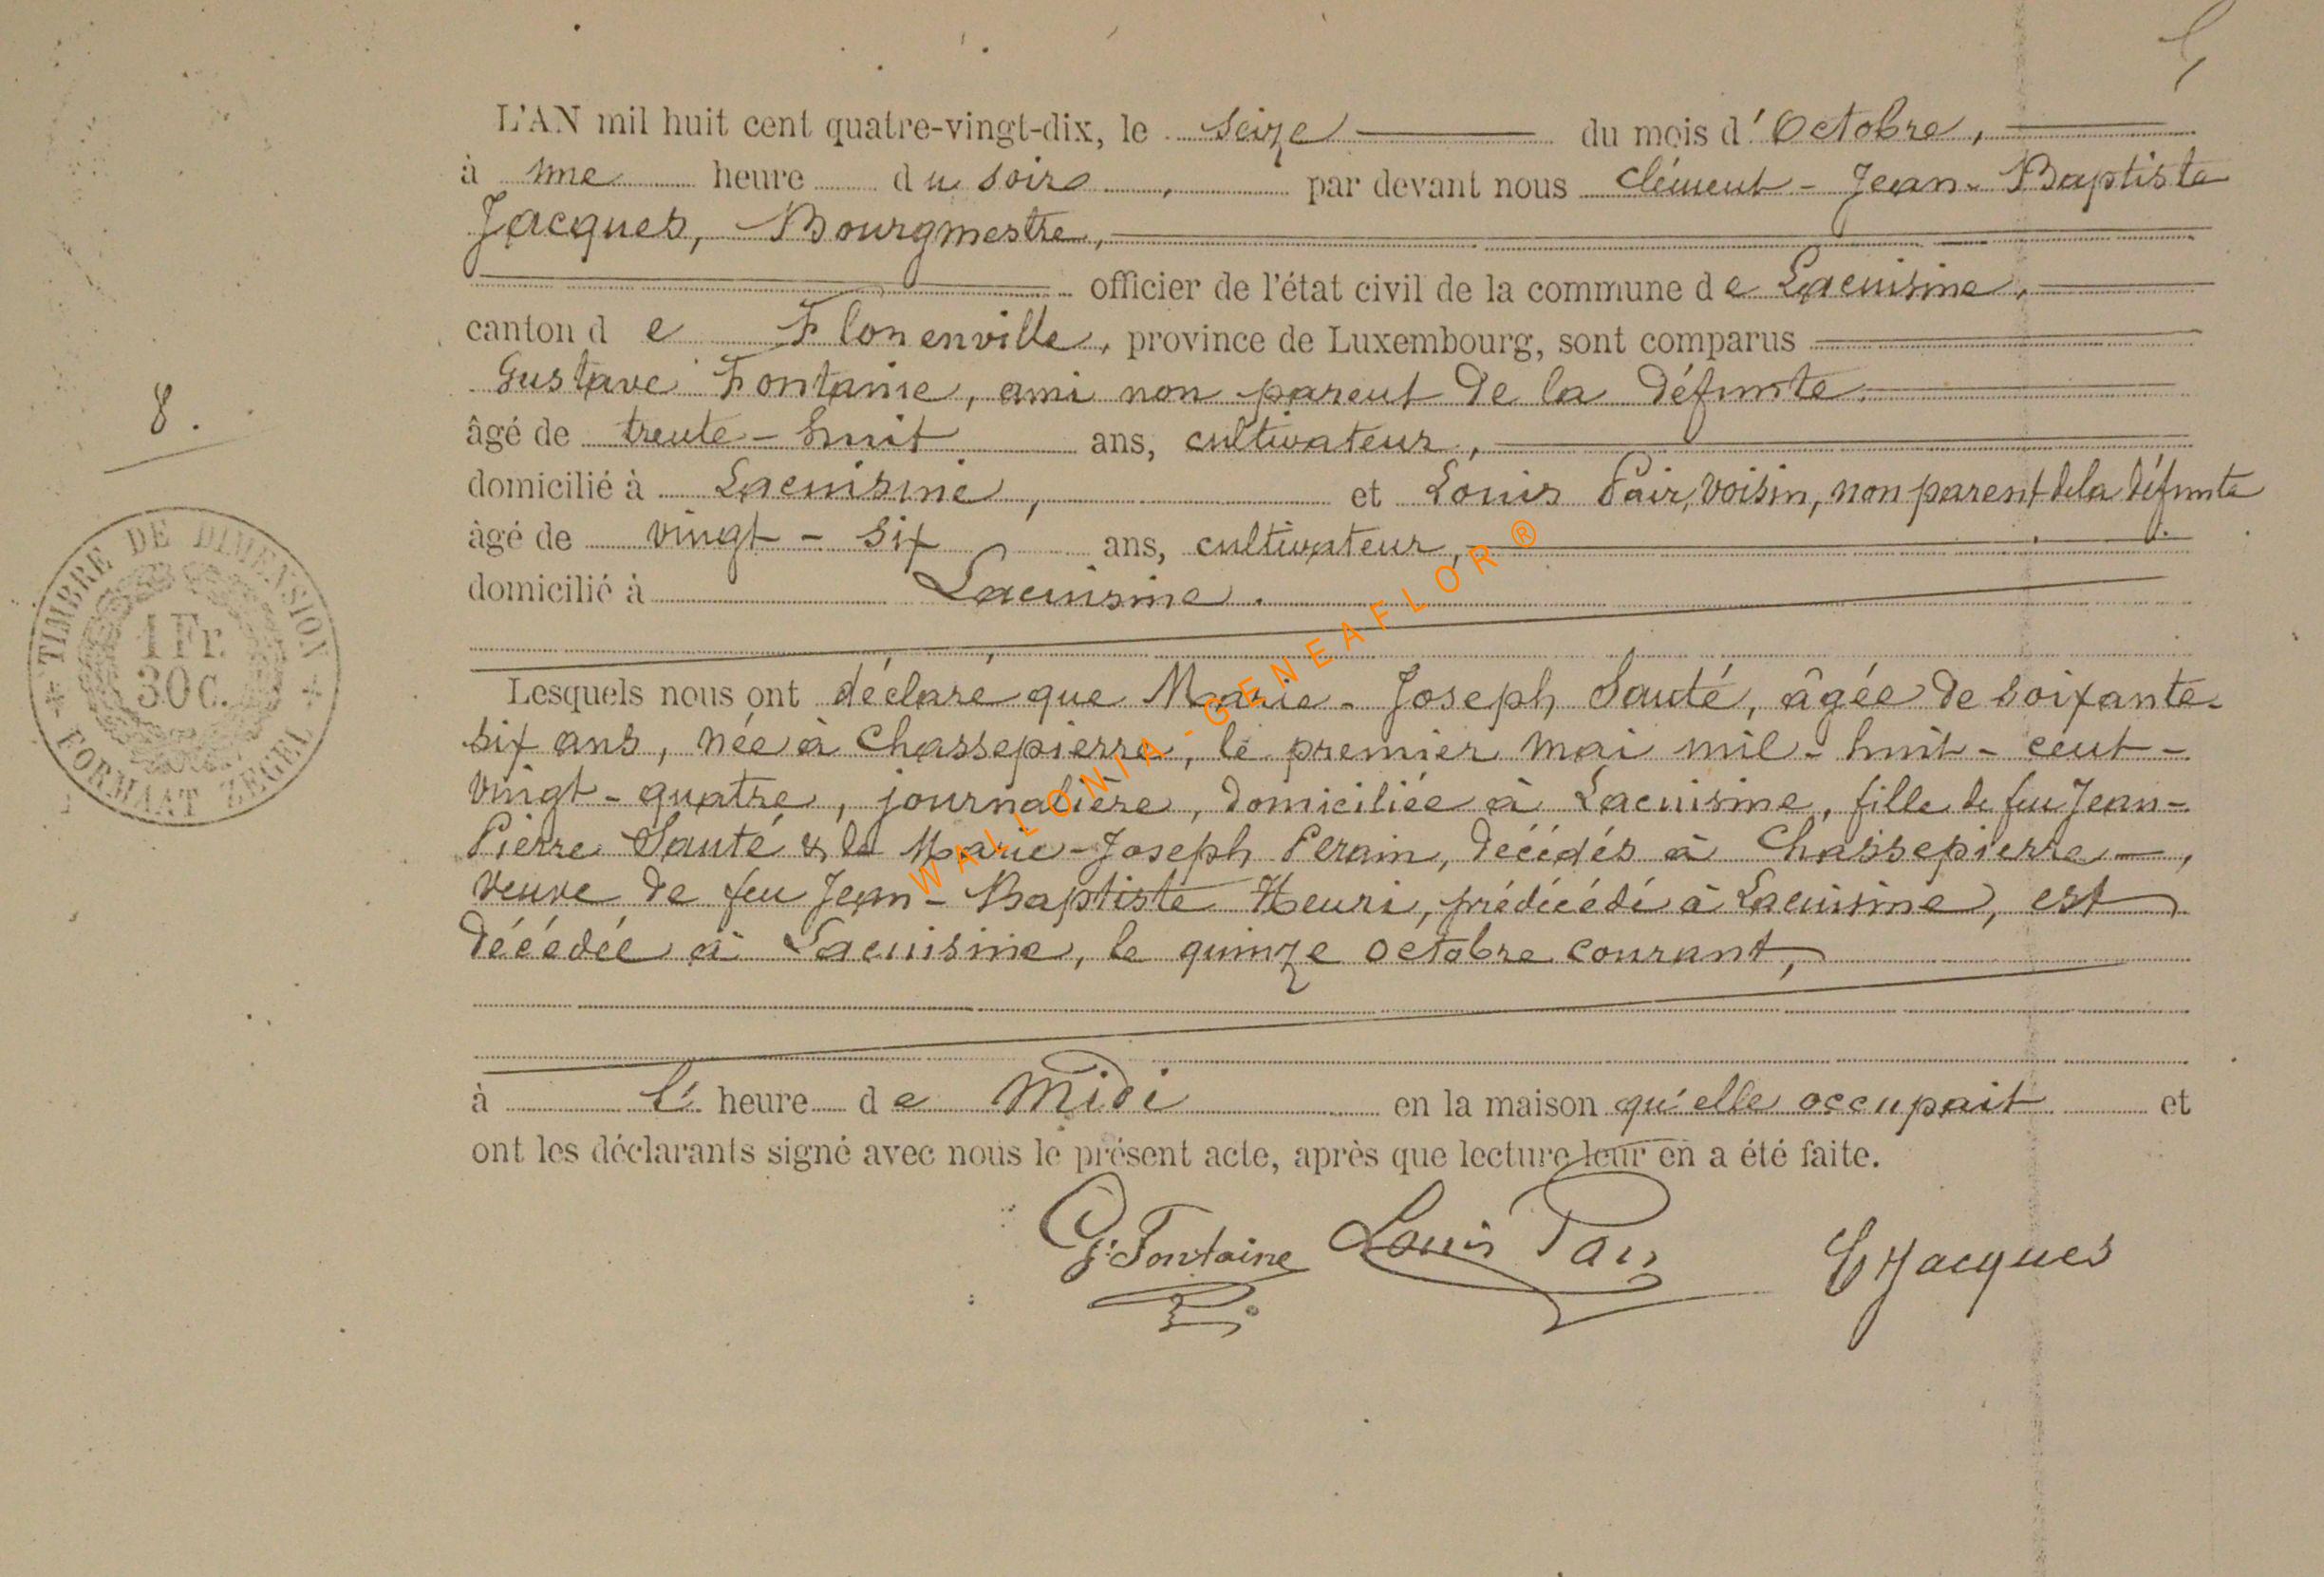 L'AN mil huit cent quatre-vingt-dix, le seize du mois d'Octobre,
à une heure du soir, par devant nous Clément-Jean-Baptiste
Jacques, Bourgmestre,
officier de l'état civil de la commune de Lacuisine,
canton de Florenville, province de Luxembourg, sont comparus
Gustave Fontaine, ami non parent de la défunte.
8.
âgé de trente-huit ans, cultivateur,
domicilié à Lacuisine, et Louis Pair, voisin, non parent de la défunte.
âgé de vingt-six ans, cultivateur,
domicilié à Lacuisine.
TIMBRE DE DIMENSION
1 Fr.
30 c.
FORMAAT ZEGEL
WALLONIA-GENEAFLOR®
Lesquels nous ont déclaré que Marie-Joseph Sauté, âgée de soixante-
six ans, née à Chassepierre, le premier mai mil-huit-cent-
vingt-quatre, journalière, domiciliée à Lacuisine, fille de feu Jean-
Pierre Sauté & de Marie-Joseph Perain, décédés à Chassepierre,
veuve de feu Jean-Baptiste Henri, prédécédé à Lacuisine, est
décédée à Lacuisine, le quinze octobre courant,
à l' heure de Midi en la maison qu'elle occupait et
ont les déclarants signé avec nous le présent acte, après que lecture leur en a été faite.
G. Fontaine Louis Pair CJJacques